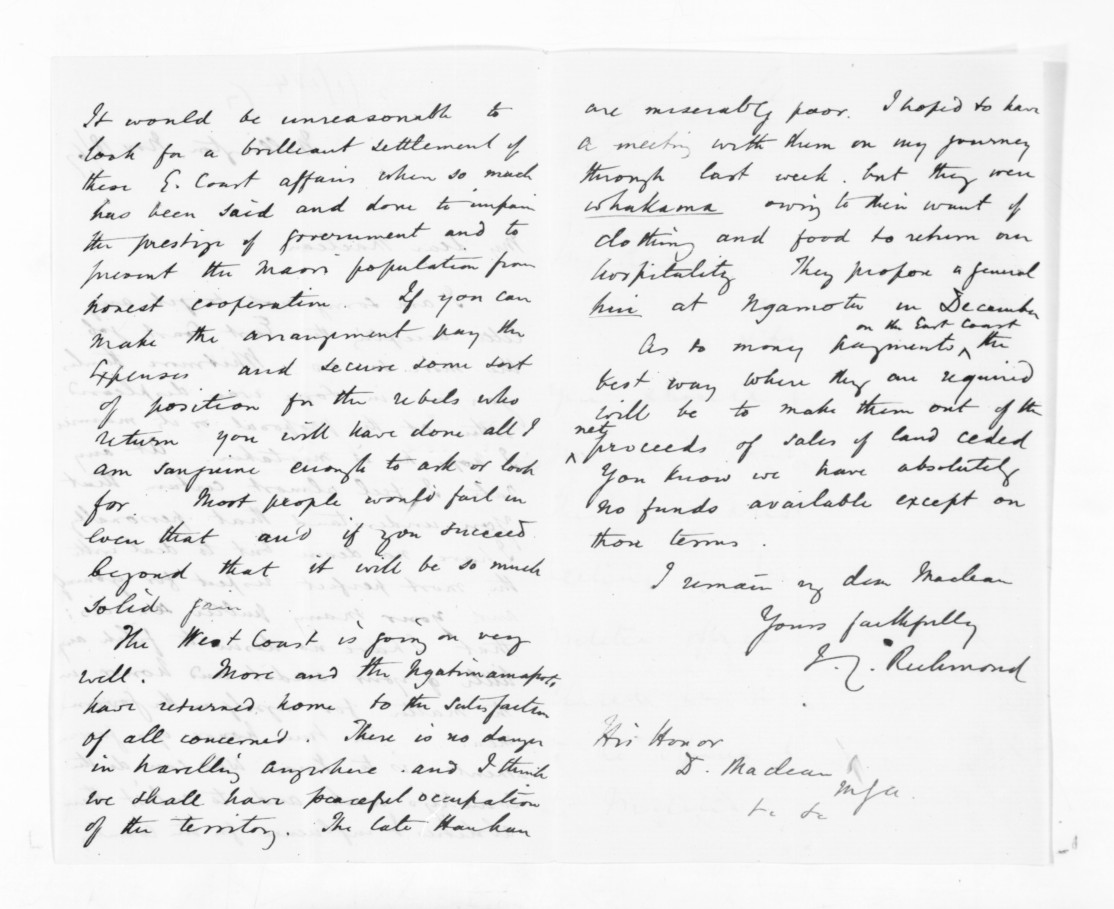 It would be unreasonable to
look for a brilliant settlement of
these E. Coast affairs when so much
has been said and done to impair
the prestige of government and to
present the Maori population from
honest cooperation. If you can
make the arrangement pay the
Expenses and secure some sort
of position for the rebels who
return you will have done all I
am sanguine enough to ask or look
for. Most people would fail in
even that and if you succeed
beyond that it will be so much
solid gain
The West Coast is going on very
well. More and the Ngatimamapoto
have returned home to the satisfaction
of all concerned. There is no danger
in travelling anywhere. and I think
we shall have peaceful occupation
of the territory. The late Hauhau
are miserably poor. I hoped to have
a meeting with them on my journey
through last week. but they were
whakama owing to their want of
clothing and food to return our
hospitality They propose a general
hui at Ngamotu in December
As to money payments on the East Coast the
best way where they are required
will be to make them out of the
net proceeds of sales of land ceded
You know we have absolutely
no funds available except on
those terms.
I remain my dear Maclean
Yours faithfully
J. C. Richmond
His Honor
D. Maclean
&c &c